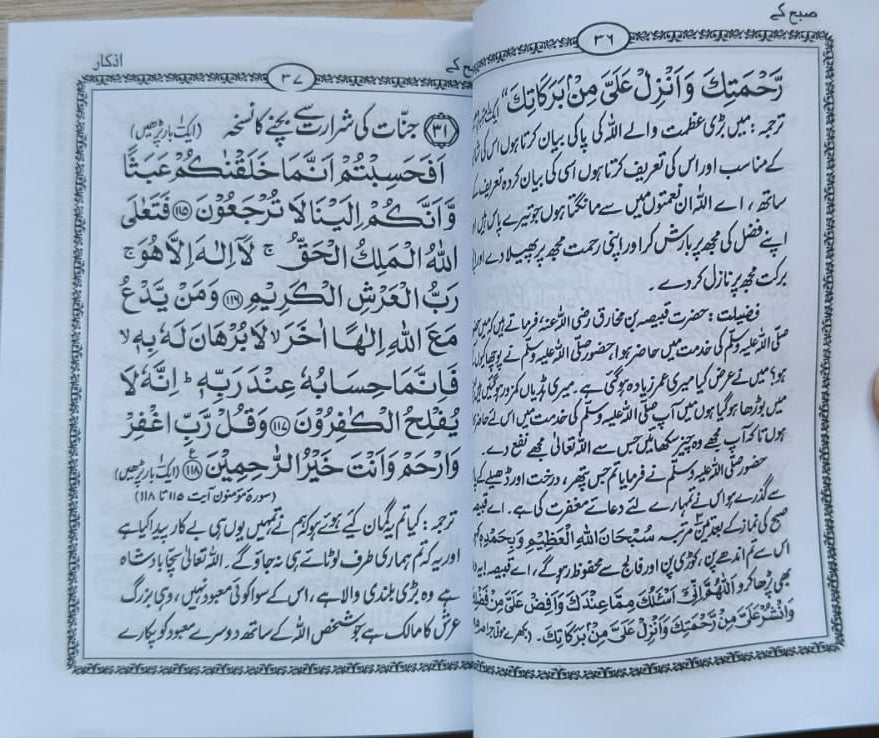 صبح کے
۳۶
رَّحْمَتِكَ وَاَنْزِلْ عَلَیَّ مِنْۢ بَرَكَاتِكَ“
ترجمہ: میں بڑی عظمت والے اللہ کی پاکی بیان کرتا ہوں اس کی
کے مناسب اور اس کی تعریف کرتا ہوں اسی کی بیان کردہ تعریف کے
ساتھ، اے اللہ ان نعمتوں میں سے مانگتا ہوں جو تیرے پاس ہیں اور
اپنے فضل کی مجھ پر بارش کر اور اپنی رحمت مجھ پر پھیلا دے اور
برکت مجھ پر نازل کر دے۔
فضیلت: حضرت قبیصہ بن مخارق رضی اللہ عنہ فرماتے ہیں کہ میں
صلی اللہ علیہ وسلم کی خدمت میں حاضر ہوا، حضور صلی اللہ علیہ وسلم نے پوچھا کیوں
ہو؟ میں نے عرض کیا میری عمر زیادہ ہو گئی ہے۔ میری ہڈیاں کمزور ہو گئیں
میں بوڑھا ہو گیا ہوں میں آپ صلی اللہ علیہ وسلم کی خدمت میں اس لئے حاضر
ہوں تاکہ آپ مجھے وہ چیز سکھائیں جس سے اللہ تعالیٰ مجھے نفع دے۔
حضور صلی اللہ علیہ وسلم نے فرمایا تم جس پتھر، درخت اور ڈھیلے کے
سے گذرے ہو اس نے تمہارے لئے دعائے مغفرت کی ہے۔ اے قبیصہ
صبح کی نماز کے بعد تین مرتبہ سُبْحَانَ اللهِ الْعَظِيْمِ وَبِحَمْدِهٖ
اس سے تم اندھے پن، کوڑی پن اور فالج سے محفوظ رہو گے، اے قبیصہ!
بھی پڑھا کرو اَللّٰهُمَّ اِنِّیْ اَسْئَلُكَ مِمَّا عِنْدَكَ وَاَفِضْ عَلَیَّ مِنْ فَضْلِكَ
وَانْشُرْ عَلَیَّ مِنْ رَّحْمَتِكَ وَاَنْزِلْ عَلَیَّ مِنْۢ بَرَكَاتِكَ۔ (بکھرے موتی
اذکار
صبح کے
۳۷
۳۱ جنّات کی شرارت سے بچنے کا نسخہ (ایک بار پڑھیں)
اَفَحَسِبْتُمْ اَنَّمَا خَلَقْنٰكُمْ عَبَثًا
وَّاَنَّكُمْ اِلَيْنَا لَا تُرْجَعُوْنَ ﴿۱۱۵﴾ فَتَعٰلَی
اللهُ الْمَلِكُ الْحَقُّ ۚ لَاۤ اِلٰهَ اِلَّا هُوَ ۚ
رَبُّ الْعَرْشِ الْكَرِيْمِ ﴿۱۱۶﴾ وَمَنْ يَّدْعُ
مَعَ اللهِ اِلٰهًا اٰخَرَ ۙ لَا بُرْهَانَ لَهٗ بِهٖ ۙ
فَاِنَّمَا حِسَابُهٗ عِنْدَ رَبِّهٖ ؕ اِنَّهٗ لَا
يُفْلِحُ الْكٰفِرُوْنَ ﴿۱۱۷﴾ وَقُلْ رَّبِّ اغْفِرْ
وَارْحَمْ وَاَنْتَ خَيْرُ الرّٰحِمِيْنَ ﴿۱۱۸﴾ (ایک بار پڑھیں)
(سورۃ مؤمنون آیت ۱۱۵ تا ۱۱۸)
ترجمہ: کیا تم یہ گمان کیے ہوئے ہو کہ ہم نے تمہیں یوں ہی بے کار پیدا کیا ہے
اور یہ کہ تم ہماری طرف لوٹائے ہی نہ جاؤ گے۔ اللہ تعالیٰ سچا بادشاہ
ہے وہ بڑی بلندی والا ہے، اس کے سوا کوئی معبود نہیں، وہی بزرگ
عرش کا مالک ہے جو شخص اللہ کے ساتھ دوسرے معبود کو پکارے